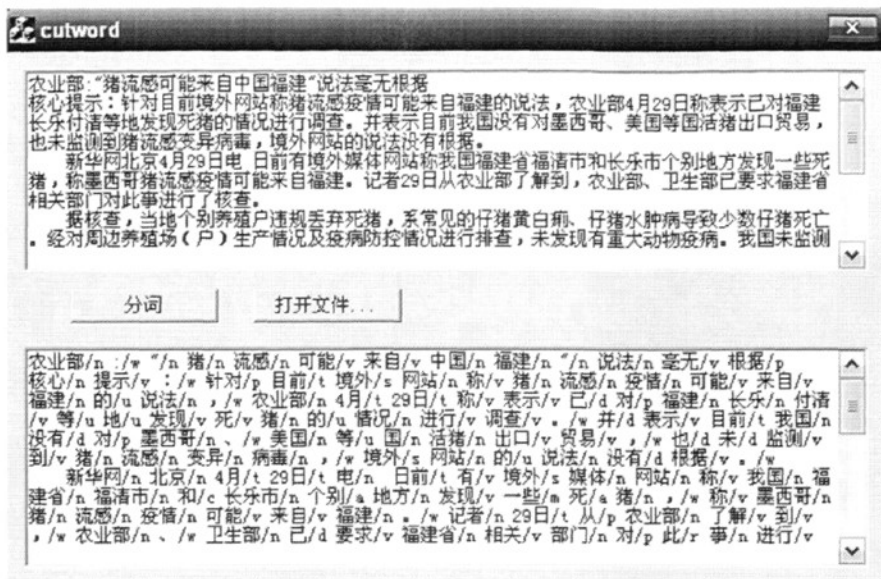 cutword
农业部:"猪流感可能来自中国福建"说法毫无根据
核心提示：针对目前境外网站称猪流感疫情可能来自福建的说法，农业部4月29日称表示已对福建
长乐付清等地发现死猪的情况进行调查。并表示目前我国没有对墨西哥、美国等国活猪出口贸易，
也未监测到猪流感变异病毒，境外网站的说法没有根据。
新华网北京4月29日电 日前有境外媒体网站称我国福建省福清市和长乐市个别地方发现一些死
猪，称墨西哥猪流感疫情可能来自福建。记者29日从农业部了解到，农业部、卫生部已要求福建省
相关部门对此事进行了核查。
据核查，当地个别养殖户违规丢弃死猪，系常见的仔猪黄白痢、仔猪水肿病导致少数仔猪死亡
。经对周边养殖场（户）生产情况及疫病防控情况进行排查，未发现有重大动物疫病。我国未监测
分词
打开文件...
农业部/n :/w "/n 猪/n 流感/n 可能/v 来自/v 中国/n 福建/n "/n 说法/n 毫无/v 根据/p
核心/n 提示/v ：/w 针对/p 目前/t 境外/s 网站/n 称/v 猪/n 流感/n 疫情/n 可能/v 来自/v
福建/n 的/u 说法/n ，/w 农业部/n 4月/t 29日/t 称/v 表示/v 已/d 对/p 福建/n 长乐/n 付清
/v 等/u 地/u 发现/v 死/v 猪/n 的/u 情况/n 进行/v 调查/v 。/w 并/d 表示/v 目前/t 我国/n
没有/d 对/p 墨西哥/n 、/w 美国/n 等/u 国/n 活猪/n 出口/v 贸易/v ，/w 也/d 未/d 监测/v
到/v 猪/n 流感/n 变异/n 病毒/n ，/w 境外/s 网站/n 的/u 说法/n 没有/d 根据/v 。/w
新华网/n 北京/n 4月/t 29日/t 电/n 日前/t 有/v 境外/s 媒体/n 网站/n 称/v 我国/n 福
建省/n 福清市/n 和/c 长乐市/n 个别/a 地方/n 发现/v 一些/m 死/a 猪/n ，/w 称/v 墨西哥/n
猪/n 流感/n 疫情/n 可能/v 来自/v 福建/n 。/w 记者/n 29日/t 从/p 农业部/n 了解/v 到/v
，/w 农业部/n 、/w 卫生部/n 已/d 要求/v 福建省/n 相关/v 部门/n 对/p 此/r 事/n 进行/v